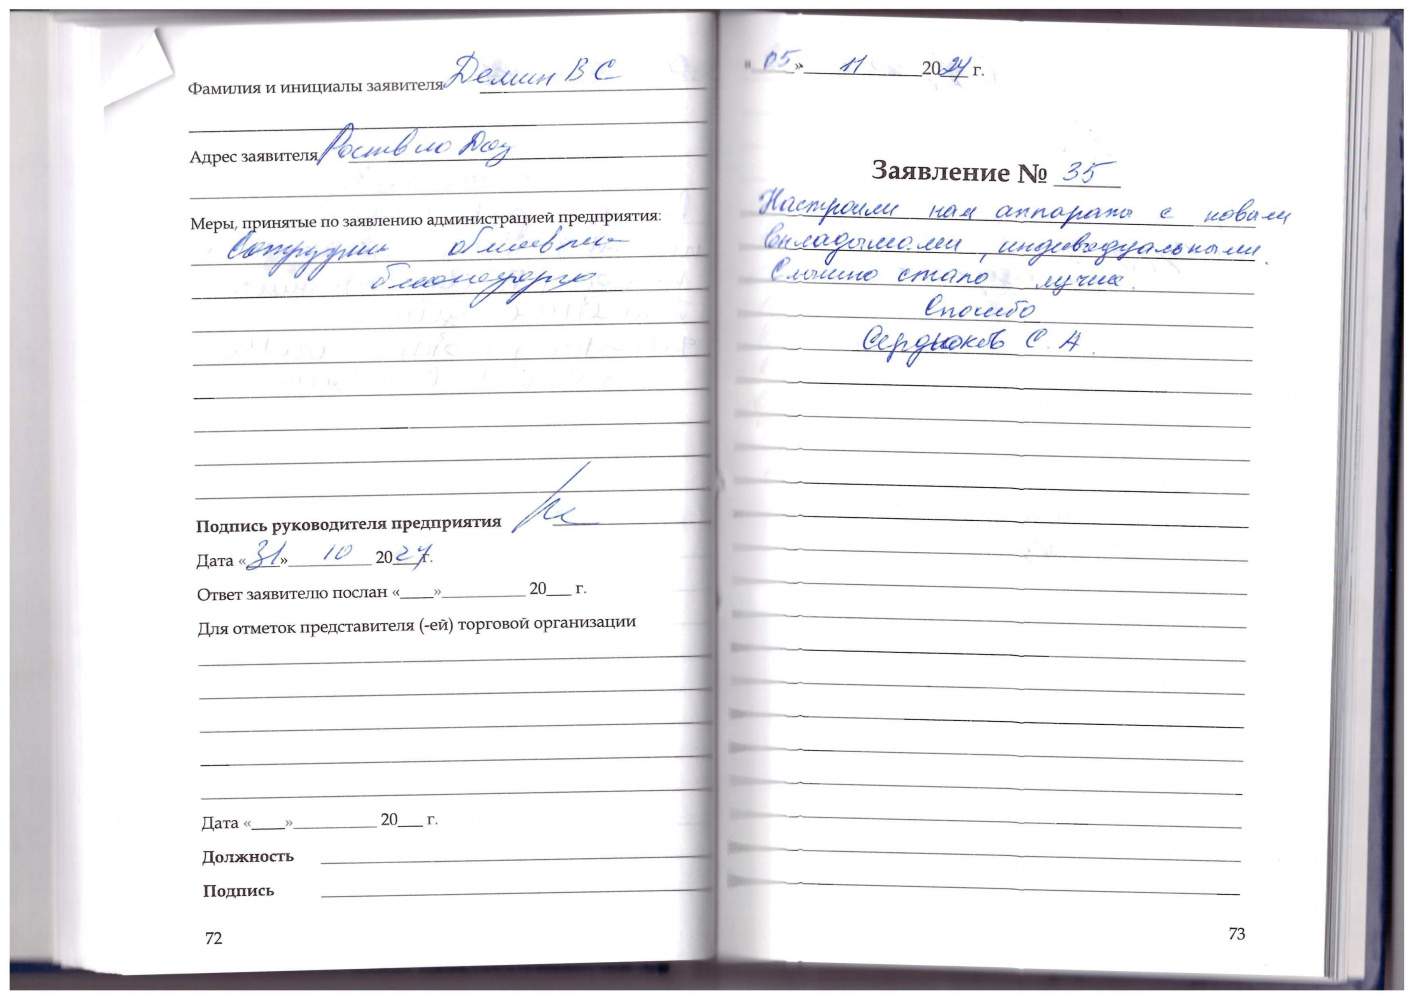 Фамилия и инициалы заявителя Демин В С
Адрес заявителя Роств на Дону
Меры, принятые по заявлению администрацией предприятия:
Сотруднику объявлена
благодарность
Подпись руководителя предприятия
Дата «31» 10 2024г.
Ответ заявителю послан «____»__________ 20___ г.
Для отметок представителя (-ей) торговой организации
Дата «____»__________ 20___ г.
Должность
Подпись
72
«05» 11 2024 г.
Заявление № 35
Настроили нам аппараты с новыми
вкладышами, индивидуальными.
Слышно стало лучше.
Спасибо
Сердюков С. А.
73